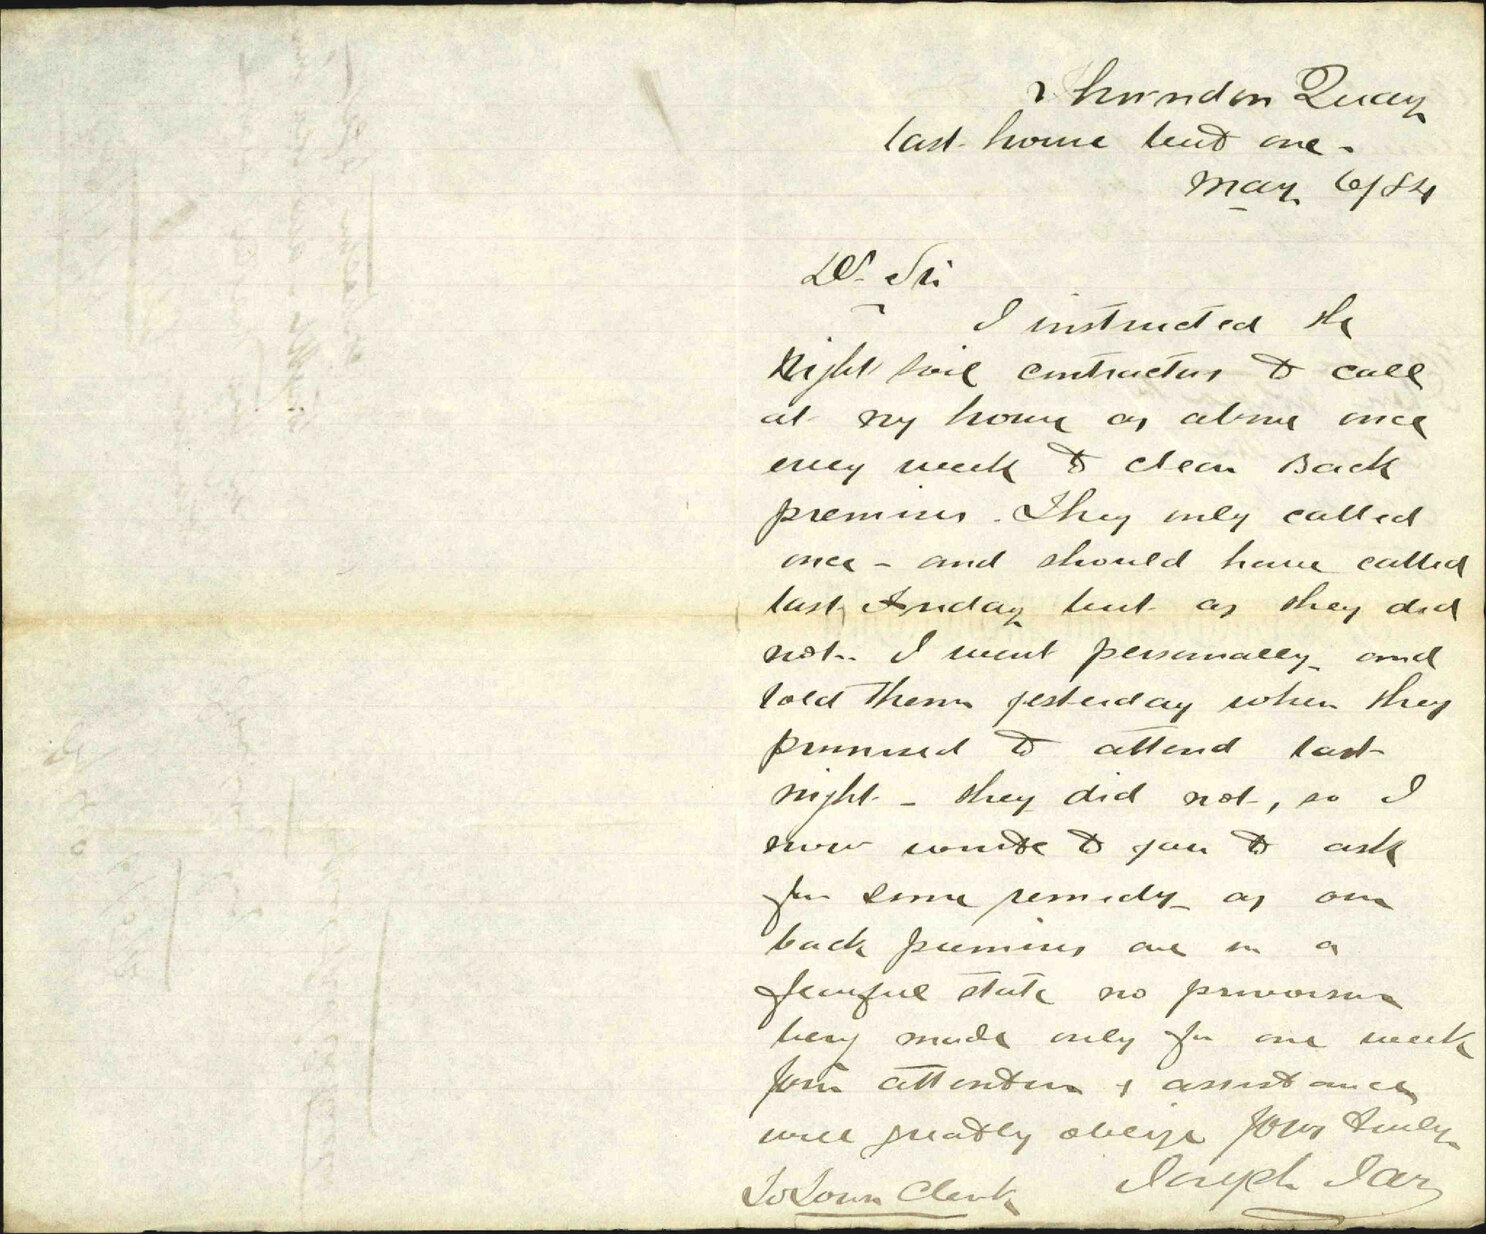 Thorndon Quay
last house but one -
May 6/84
Dr. Sir
I instructed the
Night soil contractors to call
at my house as above once
every week to clean Back
premises. They only called
once - and should have called
last Friday but as they did
not. I went personally and
told them yesterday when they
promised to attend last
night - they did not, so I
now write to you to ask
for some remedy as our
back premises are in a
fearful state no provision
being made only for one week
Your attention & assistance
will greatly oblige Yours truly
Joseph
To Town Clerk